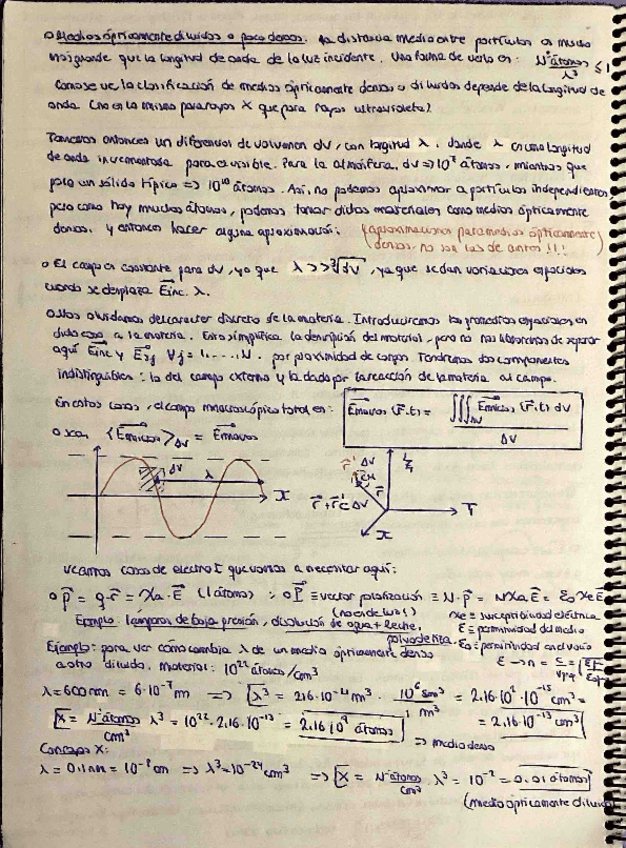 o Medios ópticamente diluidos o poco densos: La distancia media entre partículas es mucho
más grande que la longitud de onda de la luz incidente. Una forma de verlo es: Nº átomos/λ³ ≤ 1
Como se ve, la clasificación de medios ópticamente densos o diluidos depende de la longitud de
onda (no es lo mismo para rayos X que para rayos ultravioleta)
Tomemos entonces un diferencial de volumen dV, con longitud λ, donde λ es una longitud
de onda incrementada para el visible. Para la atmósfera, dV => átomos, mientras que
para un sólido típico => 10¹⁰ átomos. Así, no podemos aproximar a partículas independientes,
pero como hay muchos átomos, podemos tomar dichos materiales como medios ópticamente
densos, y entonces hacer alguna aproximación: (aproximaciones para medios ópticamente
densos, no son las de antes!!!)
o El campo es constante para dV, ya que λ >> ∛dV, ya que se dan variaciones espaciales
cuando se desplaza Einc. λ.
o Nos olvidamos del carácter discreto de la materia. Introduciremos los promedios espaciales en
a la materia. Esto simplifica la descripción del material, pero no nos libraremos de separar
aquí Einc y Ej ∀j = 1,....N. por proximidad de cargas. Tendremos dos componentes
indistinguibles: la del campo externo y la dada por la reacción de la materia al campo.
En estos casos, el campo macroscópico total es: E⃗macros (r⃗,t) = ∭ΔV E⃗micros (r⃗,t) dV / ΔV
o sea, <E⃗micros>ΔV = E⃗macros
dV λ x
r⃗' ΔV r⃗ z
r⃗ + r⃗' ∈ ΔV x
veamos cosas de electro I que vamos a necesitar aquí:
o p⃗ = q·r⃗ = χa·E⃗ (1 átomo) ; o P⃗ ≡ vector polarización ≡ N·p⃗ = Nχa E⃗ = ε₀χe E⃗
(no es de luz!) χe ≡ susceptibilidad eléctrica
Ejemplo: lámparas de baja presión, disolución de agua + leche, ε ≡ permitividad del medio
polvo de tiza. ε₀ ≡ permitividad en el vacío
Ejemplo: para ver cómo cambia λ de un medio ópticamente denso
a otro diluido. Material: 10²² átomos/cm³
λ = 600 nm = 6·10⁻⁷ m => λ³ = 216·10⁻²¹ m³ · 10⁶ cm³ / 1 m³ = 2.16·10²·10⁻¹⁵ cm³ =
= 2.16·10⁻¹³ cm³
X = Nº átomos/cm³ λ³ = 10²²·2.16·10⁻¹³ = 2.16·10⁹ átomos => medio denso
Con rayos X:
λ = 0.1 nm = 10⁻⁸ cm => λ³ = 10⁻²⁴ cm³ => X = Nº átomos/cm³ λ³ = 10⁻² = 0.01 átomos
(medio ópticamente diluido)